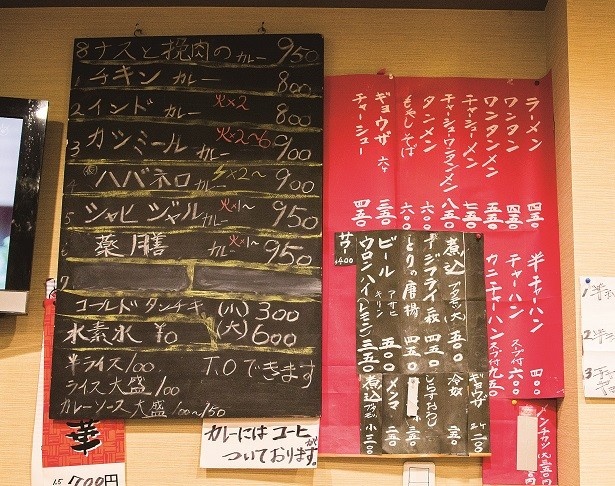 8 ナスと挽肉のカレー 950
1 チキンカレー 800
2 インドカレー 火×2 800
3 カツミールカレー 火×2~6 900
4 ハバネロカレー ×2~ 900
5 シャヒジャルカレー 火×1~ 950
6 薬膳カレー 火×1~ 950
7
コールドタンチキ (小) 300
水素水 ¥0 (大) 600
半ライス/00 TOできます
ライス大盛/00
カレーソース大盛 /00~/50
カレーにはコーヒーが
ついております。
ラーメン 450
ワンタン 450
ワンタンメン 550
チャーシューメン 750
チャーシューワンタンメン 850
タンメン 600
もやしそば 600
ギョウザ 六ケ 350
チャーシュー 450
半チャーハン 400
チャーハン スープ付 600
カニチャーハン スープ付 950
煮込 (大) 500
アジフライ 450
とりの唐揚 450
ビール アサヒ キリン
ウロンハイ(レモン) 350
サワー ¥400
ギョウザ 3ケ 200
冷奴
しらすおろし
メンマ 250
煮込 小 300
メンチカツ
華
700円